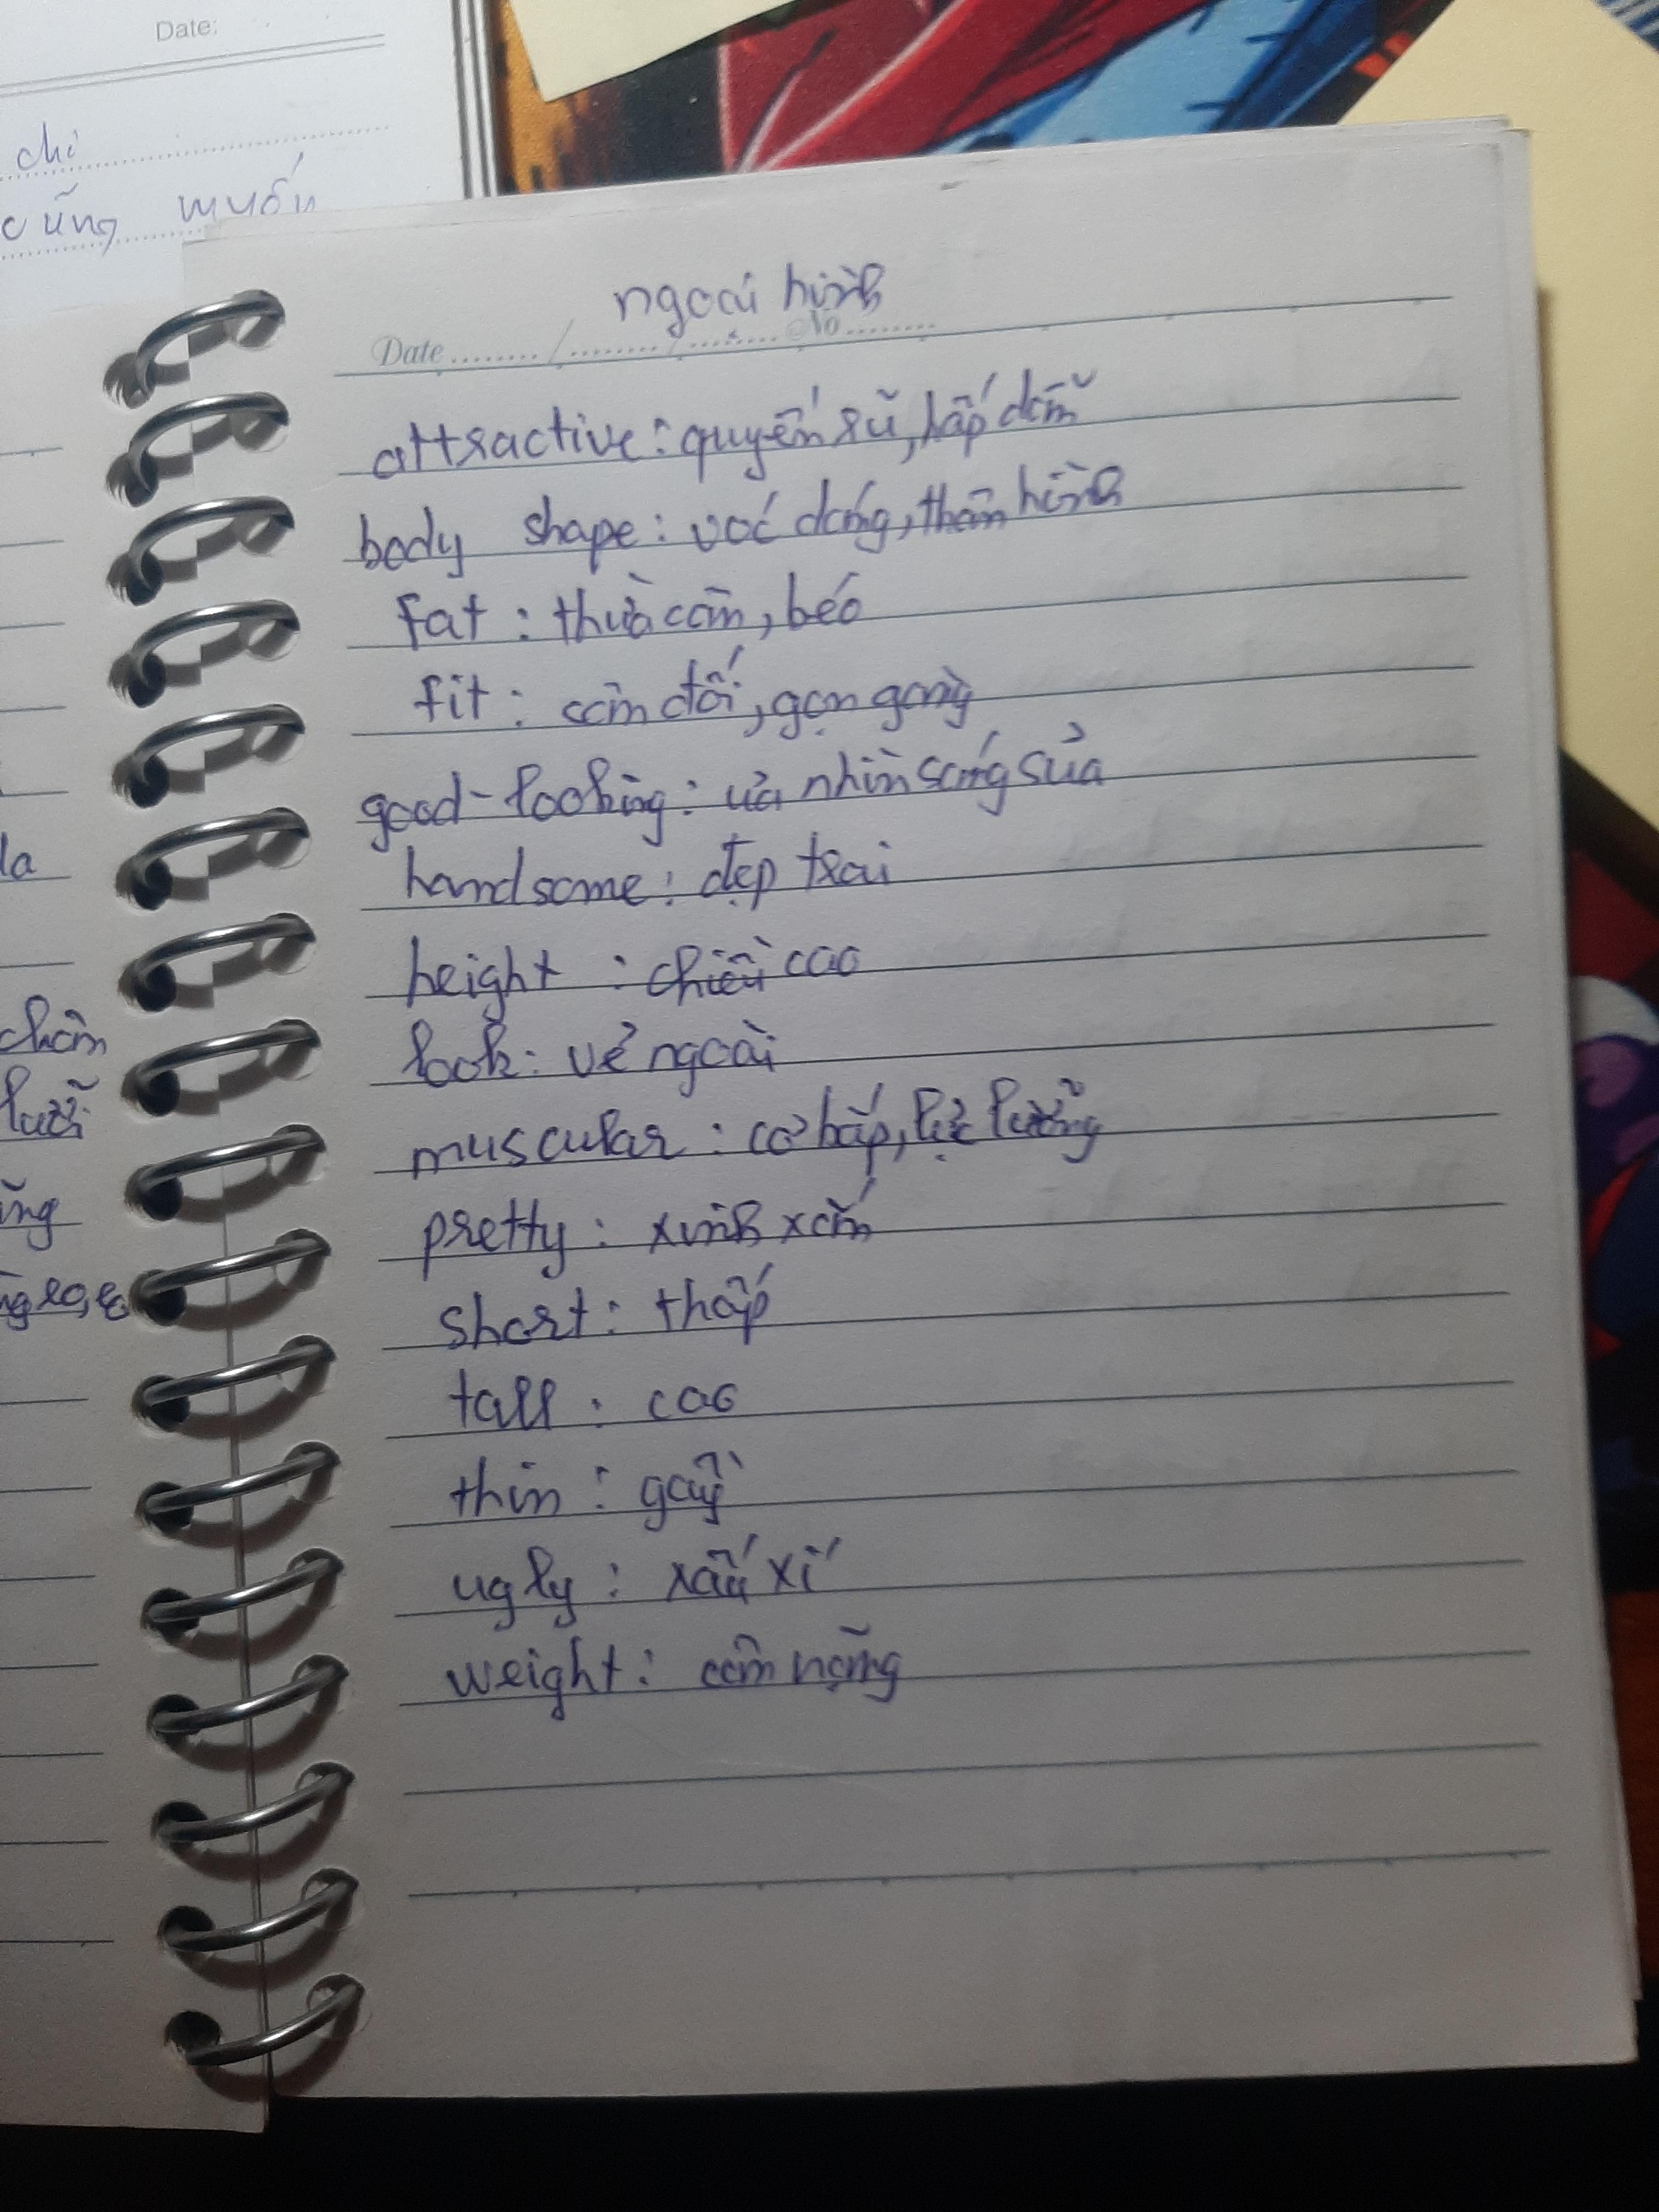 Date:
chỉ
cũng muốn
ngoại hình
Date ......../......../........ No ........
attractive: quyến rũ, hấp dẫn
body shape: vóc dáng, thân hình
fat: thừa cân, béo
fit: cân đối, gọn gàng
good-looking: ưa nhìn sáng sủa
handsome: đẹp trai
height: chiều cao
look: vẻ ngoài
muscular: cơ bắp, lực lưỡng
pretty: xinh xắn
short: thấp
tall: cao
thin: gầy
ugly: xấu xí
weight: cân nặng
la
chân
lưỡi